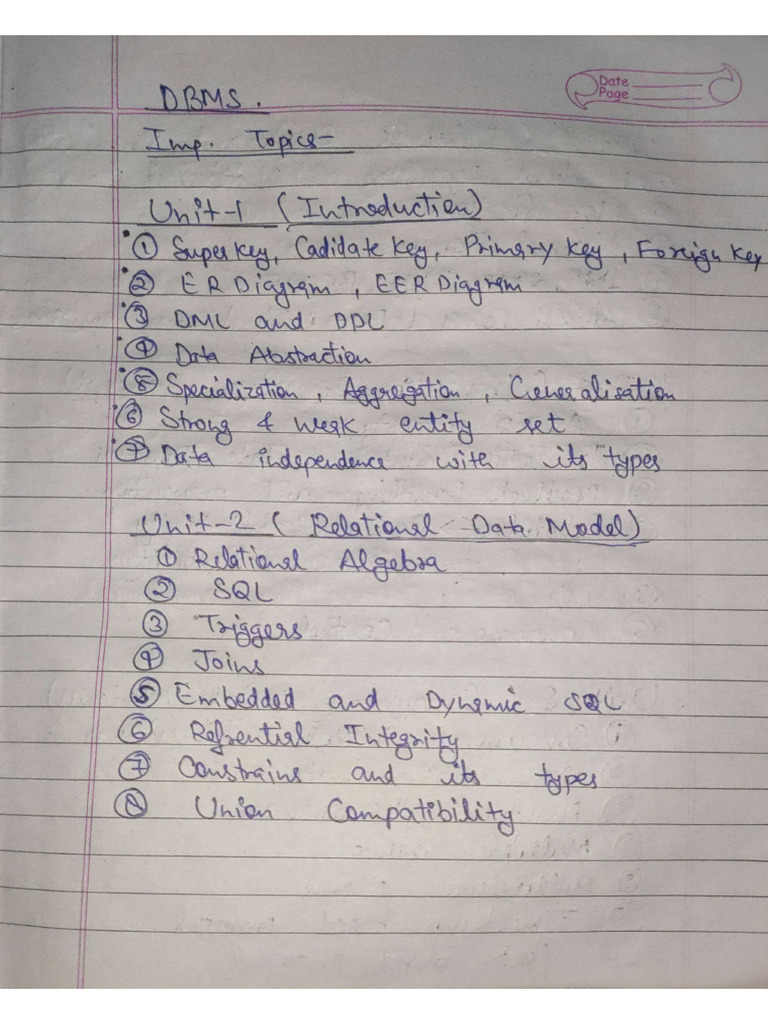 Date
Page
DBMS.
Imp. Topics-
Unit-1 (Introduction)
① Super key, Cadidate key, Primary key, Foreign key
② ER Diagram, EER Diagram
③ DML and DDL
④ Data Abstraction
⑤ Specialization, Aggreigation, Generalisation
⑥ Strong & weak entity set
⑦ Data independence with its types
Unit-2 (Relational Data Model)
① Relational Algebra
② SQL
③ Triggers
④ Joins
⑤ Embedded and Dynamic SQL
⑥ Refrential Integrity
⑦ Constrains and its types
⑧ Union Compatibility